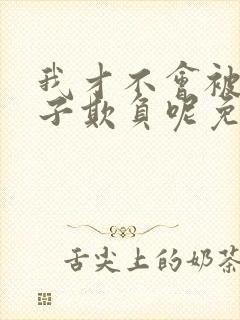 我才不會被
子欺負呢兔
舌尖上的奶茶